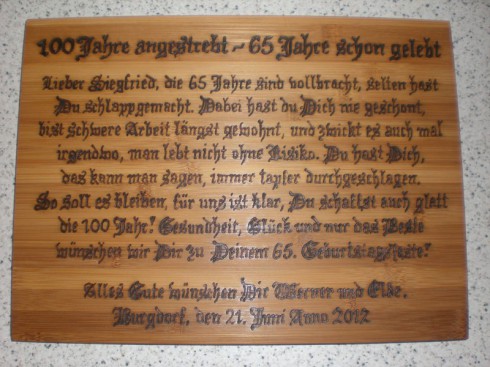 100 Jahre angestrebt ~ 65 Jahre schon gelebt
Lieber Siegfried, die 65 Jahre sind vollbracht, selten hast
Du schlapp gemacht. Dabei hast du Dich nie geschont,
bist schwere Arbeit längst gewohnt, und zwickt es auch mal
irgendwo, man lebt nicht ohne Risiko. Du hast Dich,
das kann man sagen, immer tapfer durchgeschlagen.
So soll es bleiben, für uns ist klar, Du schaffst auch glatt
die 100 Jahr! Gesundheit, Glück und nur das Beste
wünschen wir Dir zu Deinem 65. Geburtstagsfeste!
Alles Gute wünschen Dir Werner und Elke.
Burgdorf, den 21. Juni Anno 2012